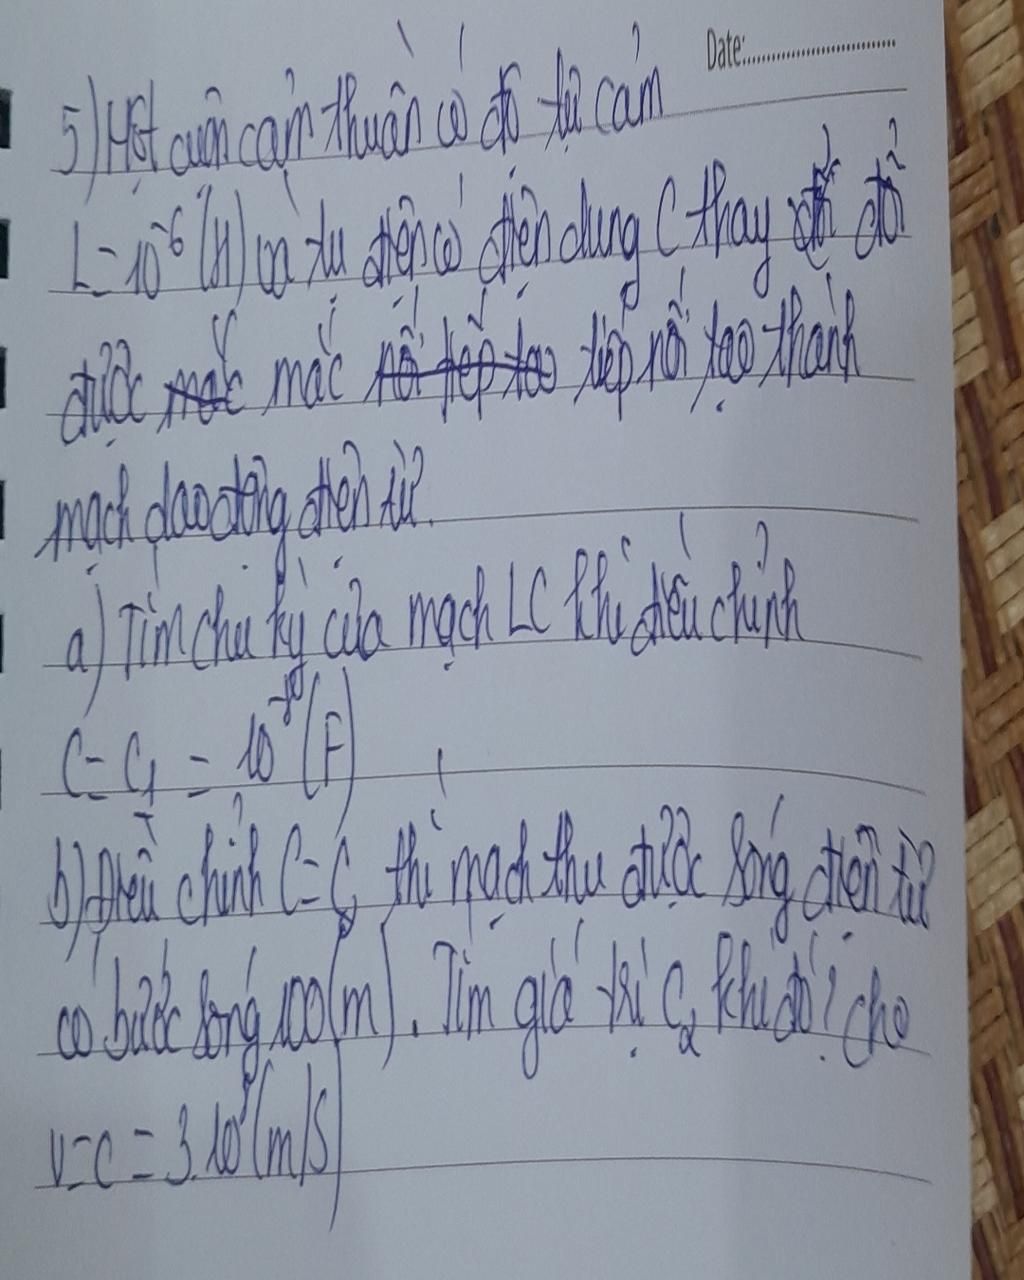 Date:
5) Một cuộn cảm thuần có độ tự cảm
L = 10⁻⁶ (H) và tụ điện có điện dung C thay đổi
được mắc tiếp nối tạo thành
mạch dao động điện từ.
a) Tìm chu kỳ của mạch LC khi điều chỉnh
C = C₁ = (F)
b) Điều chỉnh C = C₂ thì mạch thu được sóng điện từ
có bước sóng 100 (m). Tìm giá trị C₂ khi đó? cho
v = c = 3.10⁸ (m/s)